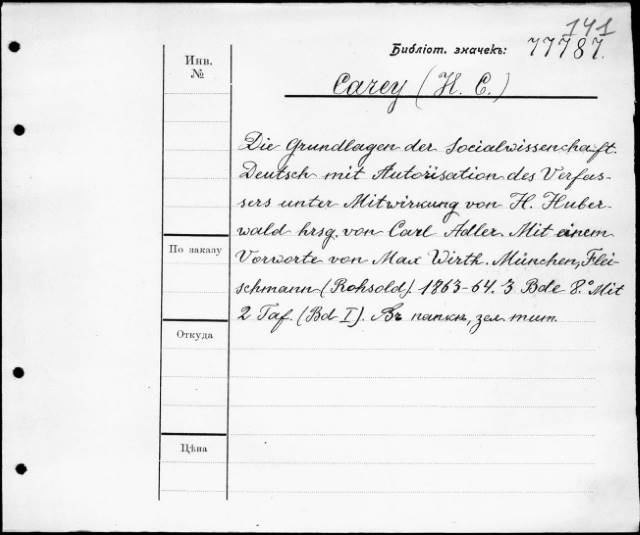 141
Библіот. значекъ: 77787.
Инв.
№
Carey (H. C.)
Die Grundlagen der Socialwissenschaft.
Deutsch mit Autorisation des Verfas-
sers unter Mitwirkung von H. Huber-
wald hrsg. von Carl Adler. Mit einem
Vorworte von Max Wirth. München, Flei-
schmann (Rohsold). 1863-64. 3 Bde 8.° Mit
2 Taf. (Bd I). Въ папкѣ, зел. тит.
По заказу
Откуда
Цѣна